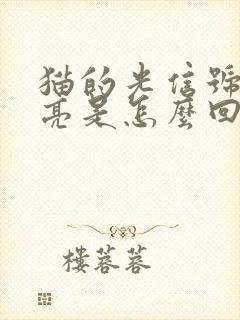 猫的光信號
亮是怎麼回
樓蓉蓉